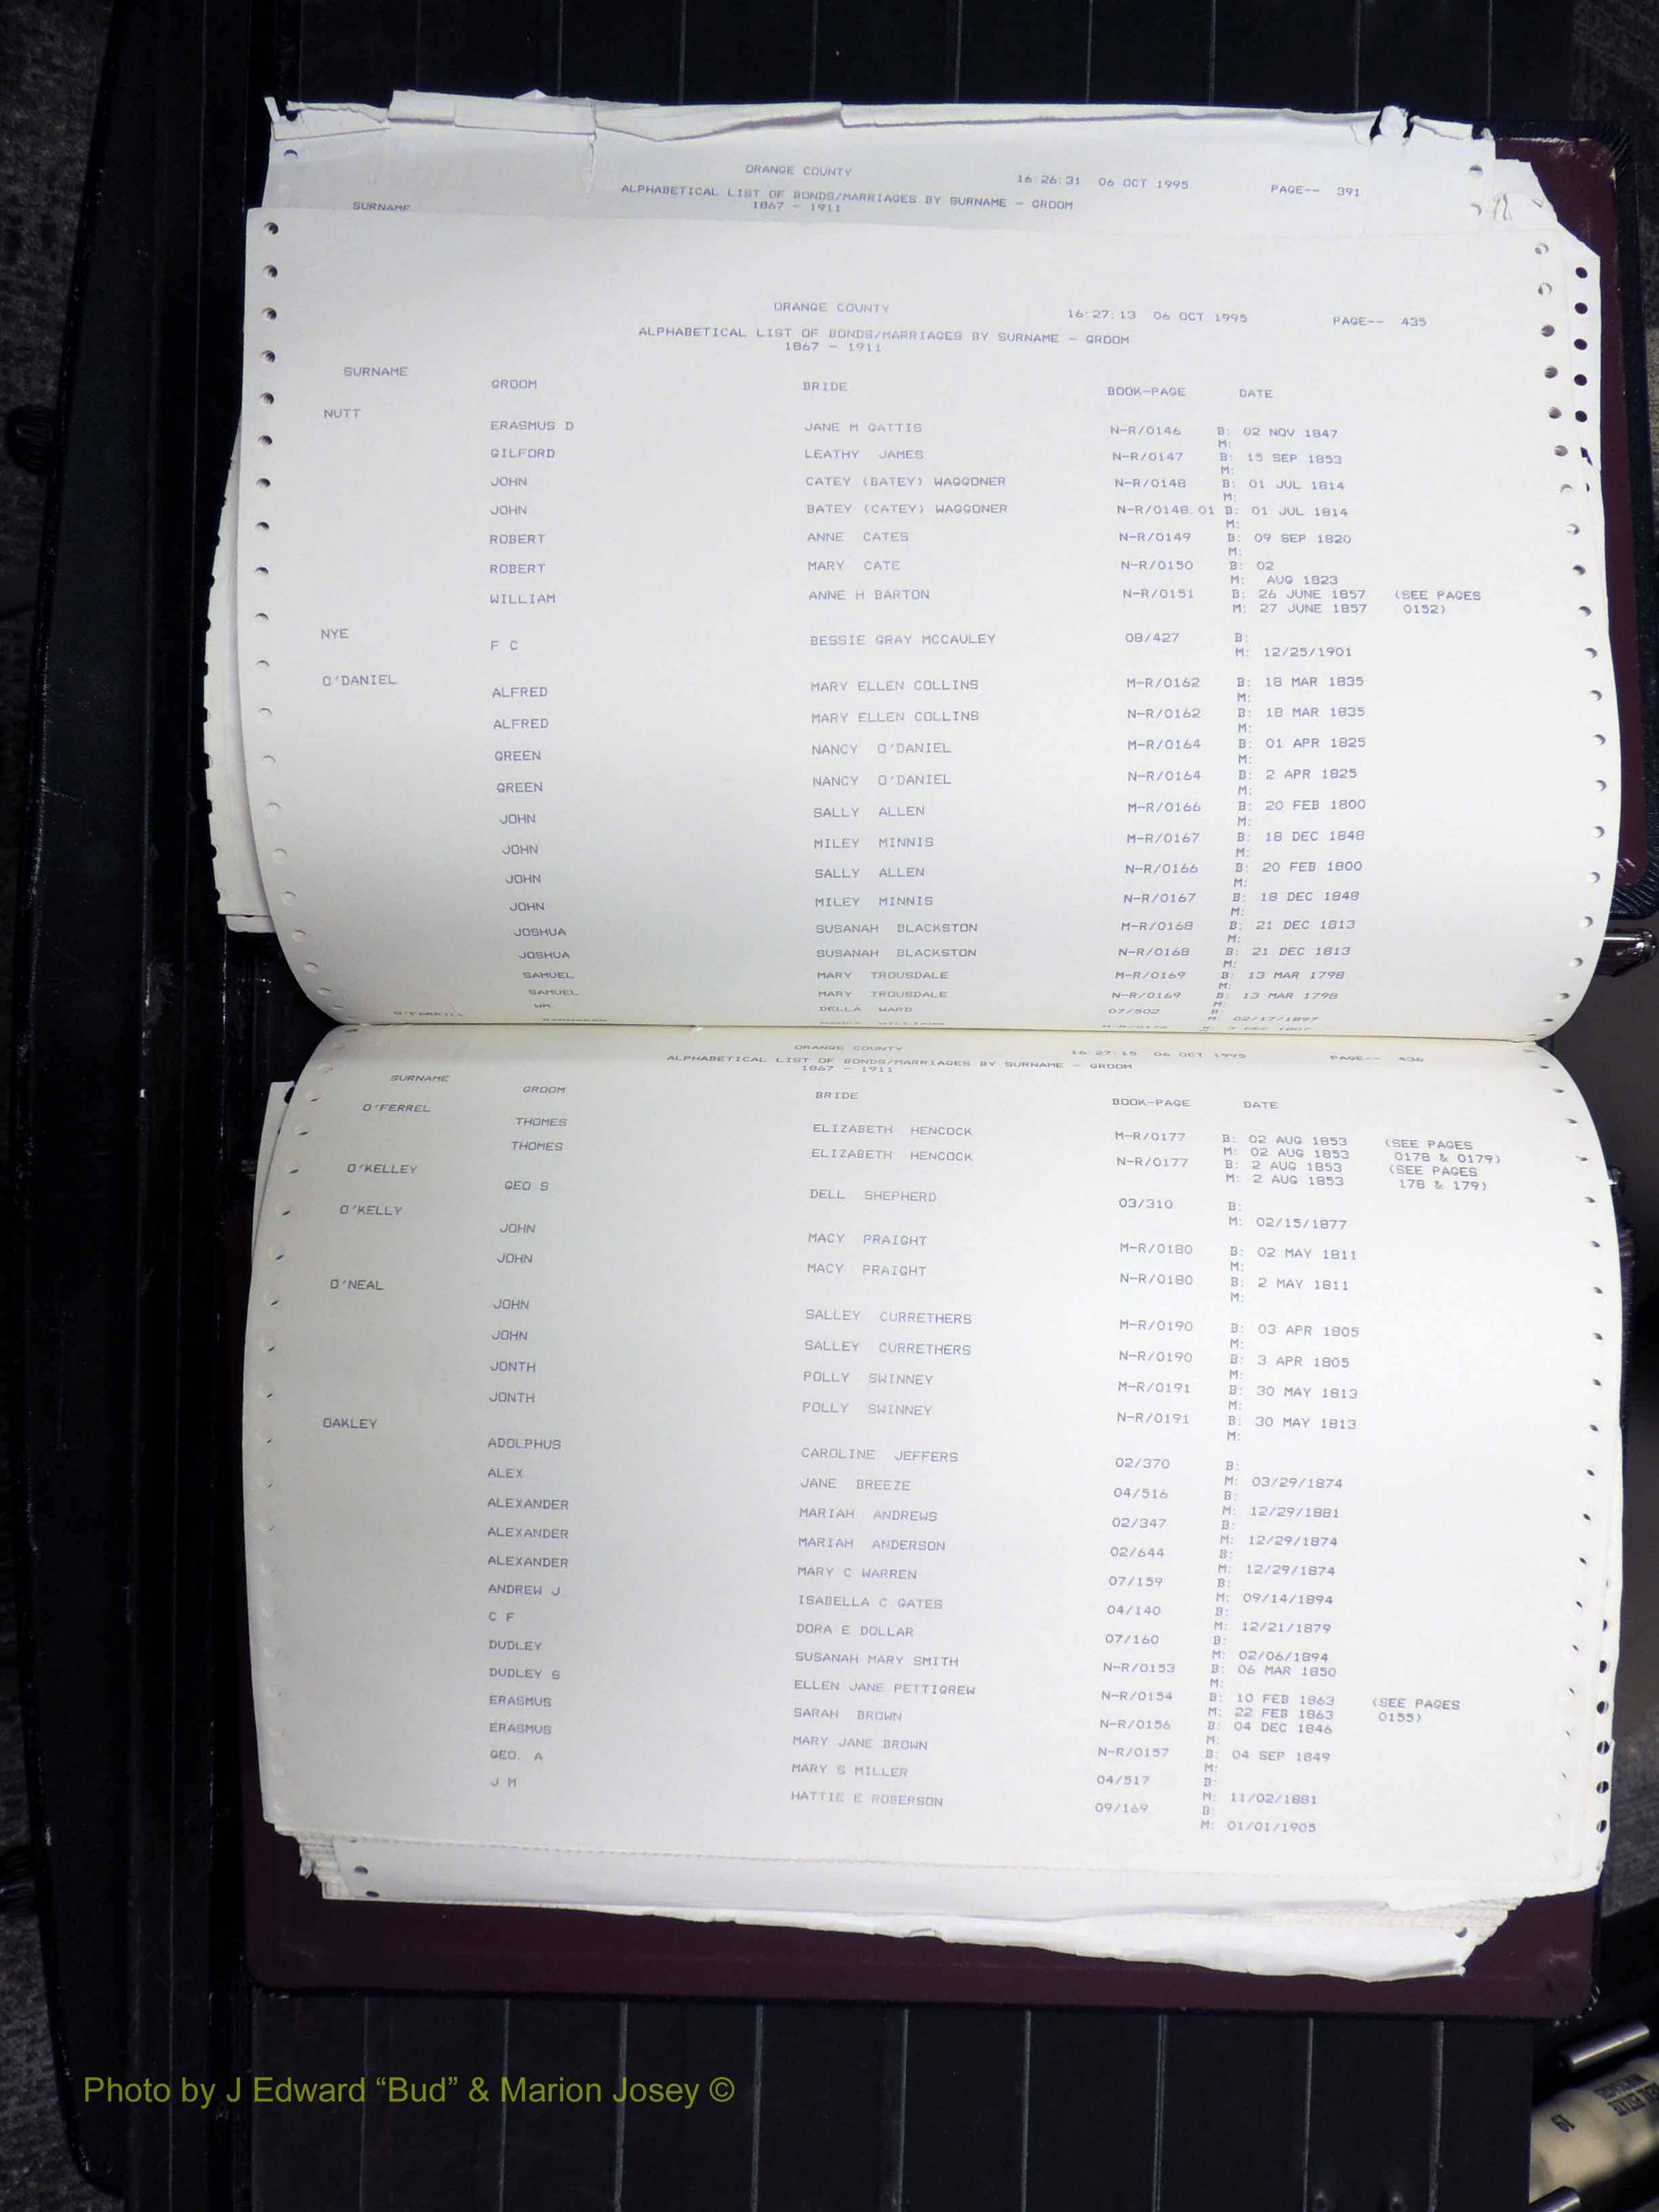 ORANGE COUNTY 16:26:31 06 OCT 1995 PAGE-- 391
ALPHABETICAL LIST OF BONDS/MARRIAGES BY SURNAME - GROOM
1867 - 1911
SURNAME
ORANGE COUNTY 16:27:13 06 OCT 1995 PAGE-- 435
ALPHABETICAL LIST OF BONDS/MARRIAGES BY SURNAME - GROOM
1867 - 1911
SURNAME
GROOM BRIDE BOOK-PAGE DATE
NUTT
ERASMUS D JANE M GATTIS N-R/0146 B: 02 NOV 1847
M:
GILFORD LEATHY JAMES N-R/0147 B: 15 SEP 1853
M:
JOHN CATEY (BATEY) WAGGONER N-R/0148 B: 01 JUL 1814
M:
JOHN BATEY (CATEY) WAGGONER N-R/0148.01 B: 01 JUL 1814
M:
ROBERT ANNE CATES N-R/0149 B: 09 SEP 1820
M:
ROBERT MARY CATE N-R/0150 B: 02
M: AUG 1823
WILLIAM ANNE H BARTON N-R/0151 B: 26 JUNE 1857 (SEE PAGES
M: 27 JUNE 1857 0152)
NYE
F C BESSIE GRAY MCCAULEY 08/427 B:
M: 12/25/1901
O'DANIEL
ALFRED MARY ELLEN COLLINS M-R/0162 B: 18 MAR 1835
M:
ALFRED MARY ELLEN COLLINS N-R/0162 B: 18 MAR 1835
M:
GREEN NANCY O'DANIEL M-R/0164 B: 01 APR 1825
M:
GREEN NANCY O'DANIEL N-R/0164 B: 2 APR 1825
M:
JOHN SALLY ALLEN M-R/0166 B: 20 FEB 1800
M:
JOHN MILEY MINNIS M-R/0167 B: 18 DEC 1848
M:
JOHN SALLY ALLEN N-R/0166 B: 20 FEB 1800
M:
JOHN MILEY MINNIS N-R/0167 B: 18 DEC 1848
M:
JOSHUA SUSANAH BLACKSTON M-R/0168 B: 21 DEC 1813
M:
JOSHUA SUSANAH BLACKSTON N-R/0168 B: 21 DEC 1813
M:
SAMUEL MARY TROUSDALE M-R/0169 B: 13 MAR 1798
M:
SAMUEL MARY TROUSDALE N-R/0169 B: 13 MAR 1798
M:
WM. DELLA WARD 07/502 B:
M: 02/17/1897
ORANGE COUNTY 16:27:15 06 OCT 1995 PAGE-- 436
ALPHABETICAL LIST OF BONDS/MARRIAGES BY SURNAME - GROOM
1867 - 1911
SURNAME
GROOM BRIDE BOOK-PAGE DATE
O'FERREL
THOMES ELIZABETH HENCOCK M-R/0177 B: 02 AUG 1853 (SEE PAGES
M: 02 AUG 1853 0178 & 0179)
THOMES ELIZABETH HENCOCK N-R/0177 B: 2 AUG 1853 (SEE PAGES
M: 2 AUG 1853 178 & 179)
O'KELLEY
GEO S DELL SHEPHERD 03/310 B:
M: 02/15/1877
O'KELLY
JOHN MACY PRAIGHT M-R/0180 B: 02 MAY 1811
M:
JOHN MACY PRAIGHT N-R/0180 B: 2 MAY 1811
M:
O'NEAL
JOHN SALLEY CURRETHERS M-R/0190 B: 03 APR 1805
M:
JOHN SALLEY CURRETHERS N-R/0190 B: 3 APR 1805
M:
JONTH POLLY SWINNEY M-R/0191 B: 30 MAY 1813
M:
JONTH POLLY SWINNEY N-R/0191 B: 30 MAY 1813
M:
OAKLEY
ADOLPHUS CAROLINE JEFFERS 02/370 B:
M: 03/29/1874
ALEX JANE BREEZE 04/516 B:
M: 12/29/1881
ALEXANDER MARIAH ANDREWS 02/347 B:
M: 12/29/1874
ALEXANDER MARIAH ANDERSON 02/644 B:
M: 12/29/1874
ALEXANDER MARY C WARREN 07/159 B:
M: 09/14/1894
ANDREW J ISABELLA C GATES 04/140 B:
M: 12/21/1879
C F DORA E DOLLAR 07/160 B:
M: 02/06/1894
DUDLEY SUSANAH MARY SMITH N-R/0153 B: 06 MAR 1850
M:
DUDLEY S ELLEN JANE PETTIGREW N-R/0154 B: 10 FEB 1863 (SEE PAGES
M: 22 FEB 1863 0155)
ERASMUS SARAH BROWN N-R/0156 B: 04 DEC 1846
M:
ERASMUS MARY JANE BROWN N-R/0157 B: 04 SEP 1849
M:
GEO. A MARY S MILLER 04/517 B:
M: 11/02/1881
J M HATTIE E ROBERSON 09/169 B:
M: 01/01/1905
Photo by J Edward “Bud” & Marion Josey ©